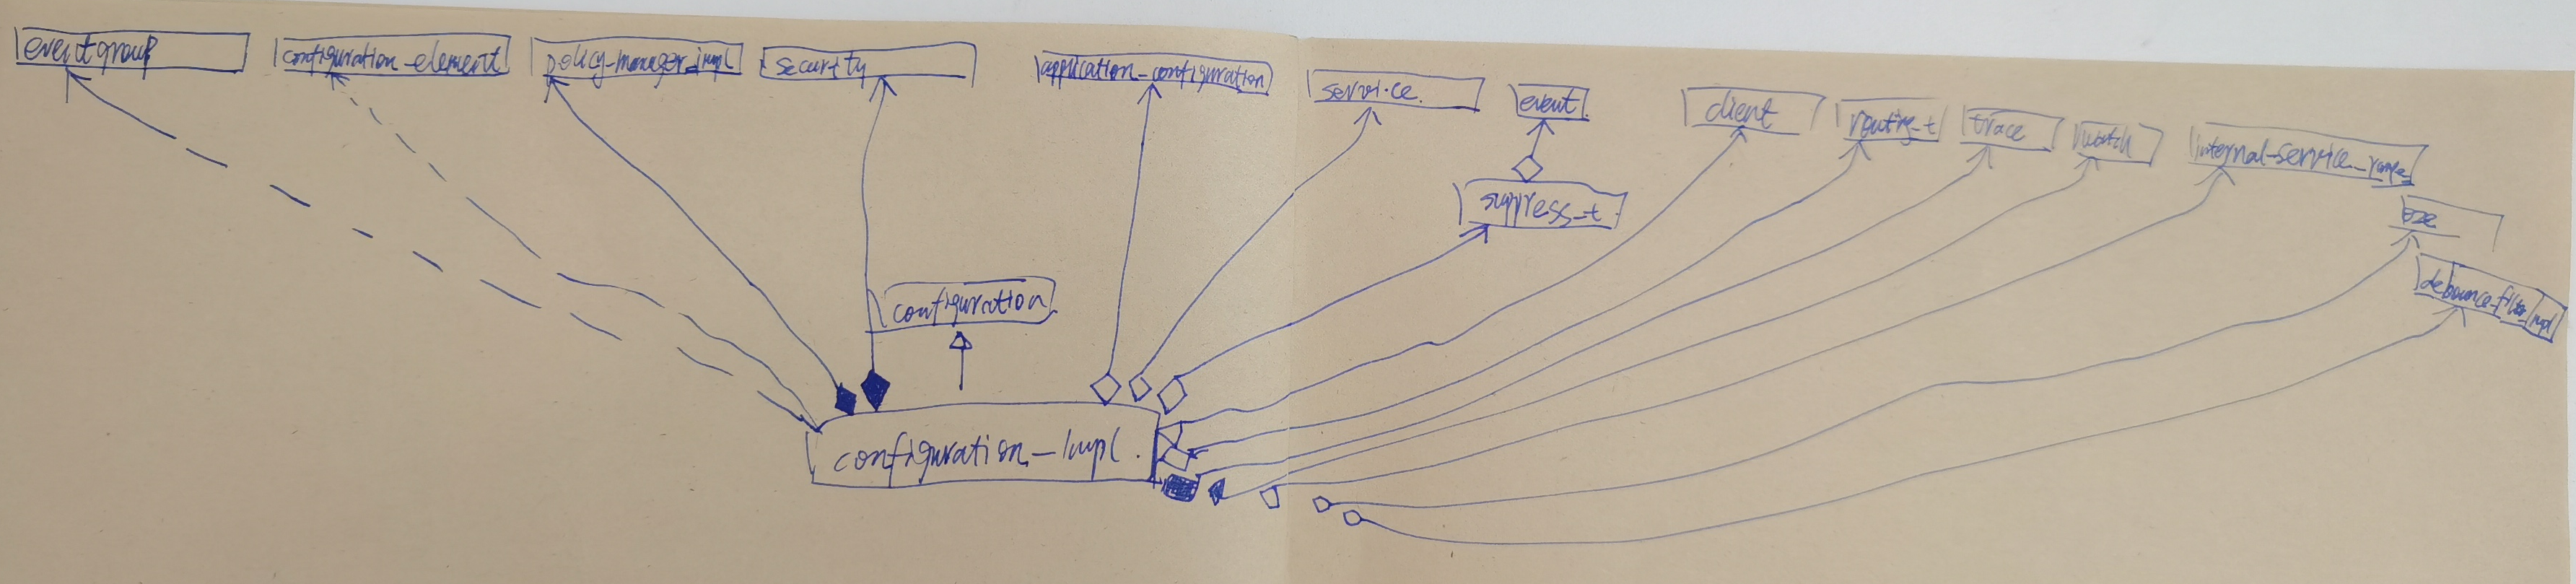 eventgroup
configuration_element
policy_manager_impl
security
application_configuration
service
event
client
routing_t
trace
watch
internal_service_range
suppress_t
configuration
debounce_filter_impl
configuration_impl.